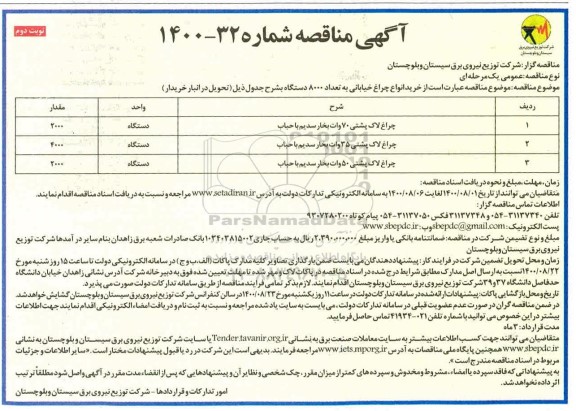 نوبت دوم
آگهی مناقصه شماره ۳۲-۱۴۰۰
شرکت توزیع نیروی برق
سیستان و بلوچستان
مناقصه گزار: شرکت توزیع نیروی برق سیستان وبلوچستان
نوع مناقصه: عمومی یک مرحله ای
موضوع مناقصه: موضوع مناقصه عبارت است از خرید انواع چراغ خیابانی به تعداد ۸۰۰۰ دستگاه بشرح جدول ذیل (تحویل در انبار خریدار)
ردیف شرح واحد مقدار
۱ چراغ لاک پشتی ۷۰ وات بخار سدیم با حباب دستگاه ۲۰۰۰
۲ چراغ لاک پشتی ۳۵ وات بخار سدیم با حباب دستگاه ۴۰۰۰
۳ چراغ لاک پشتی ۵۰ وات بخار سدیم با حباب دستگاه ۲۰۰۰
زمان، مهلت، مبلغ و نحوه دریافت اسناد مناقصه:
متقاضیان می توانند از تاریخ ۱۴۰۰/۰۸/۰۱ لغایت ۱۴۰۰/۰۸/۰۶ به سامانه الکترونیکی تدارکات دولت به آدرس www.setadiran.ir مراجعه و نسبت به دریافت اسناد مناقصه اقدام نمایند.
اطلاعات تماس مناقصه گزار:
تلفن ۳۱۱۳۷۳۴۰-۰۵۴ و ۳۱۱۳۷۳۴۸ فکس ۳۱۱۳۷۰۵۰-۰۵۴ پیام کوتاه ۹۳۰۷۲۸۰۲۰۰
پست الکترونیک: sbepdc@gmail.com وب: www.sbepdc.ir
مبلغ و نوع تضمین شرکت در مناقصه: ضمانتنامه بانکی یا واریز مبلغ ۲،۳۹۰،۰۰۰،۰۰۰ ریال به حساب جاری ۱۰۳۴۰۳۸۱۵۰۰۲ بانک صادرات شعبه برق زاهدان بنام سایر در آمدها شرکت توزیع نیروی برق سیستان وبلوچستان
زمان و محل تحویل تضمین شرکت در فرایند کار: پیشنهاددهندگان می بایست ضمن بارگذاری تصاویر کلیه مدارک پاکات (الف، ب و ج) در سامانه الکترونیکی دولت تا ساعت ۱۵ روز شنبه مورخ
۱۴۰۰/۰۸/۲۲ نسبت به ارسال اصل مدارک مطابق شرایط درج شده در اسناد مناقصه در پاکات لاک و مهر شده تا مهلت تعیین شده فوق به دبیرخانه شرکت آدرس نشانی زاهدان خیابان دانشگاه
حدفاصل دانشگاه ۳۷ و ۳۹ شرکت توزیع نیروی برق سیستان وبلوچستان اقدام نمایند. لازم بذکر تمامی فرآیند مناقصه از طریق سامانه تدارکات دولت صورت می پذیرد.
تاریخ و محل بازگشایی پاکات: پیشنهادات ارائه شده در سامانه تدارکات دولت در ساعت ۱۱ روز یکشنبه مورخ ۱۴۰۰/۰۸/۲۳ در سالن کنفرانس شرکت توزیع نیروی برق سیستان وبلوچستان گشایش خواهد شد.
در ضمن مناقصه گران در صورت عدم عضویت قبلی در سامانه تدارکات دولت، می بایست به سایت یاد شده مراجعه و نسبت به ثبت نام و دریافت امضاء الکترونیکی اقدام نمایند جهت اطلاعات
بیشتر در این خصوص می توانید با شماره تلفن ۴۱۹۳۴-۰۲۱ تماس حاصل فرمایید.
مدت قرارداد: ۲ ماه
متقاضیان می توانند جهت کسب اطلاعات بیشتر به سایت معاملات صنعت برق به نشانی Tender.tavanir.org.ir یا سایت شرکت توزیع نیروی برق سیستان وبلوچستان به نشانی
www.sbepdc.ir همچنین پایگاه ملی مناقصات به آدرس www.iets.mporg.ir مراجعه فرمایند. بدیهی است این شرکت در رد یا قبول پیشنهادات مختار است. «سایر اطلاعات و جزئیات
مربوط در اسناد مناقصه مندرج است.»
به پیشنهاداتی که فاقد سپرده یا امضاء، مشروط و مخدوش و سپرده های کمتر از میزان مقرر، چک شخصی و نظایر آن و پیشنهادهایی که پس از انقضاء مدت مقرر در آگهی واصل شود مطلقاً ترتیب
اثر داده نخواهد شد.
امور تدارکات و قراردادها - شرکت توزیع نیروی برق سیستان وبلوچستان
ParsNamadData